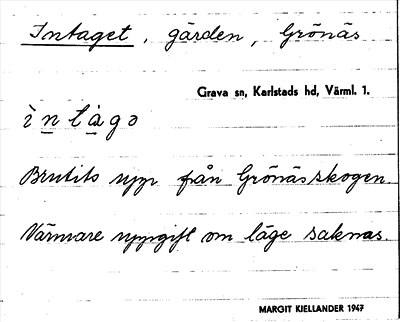 Intaget, gärden, Grönäs
Grava sn, Karlstads hd, Värml. 1.
Brutits upp från Grönässkogen.
Närmare uppgift om läge saknas.
MARGIT KJELLANDER 1947